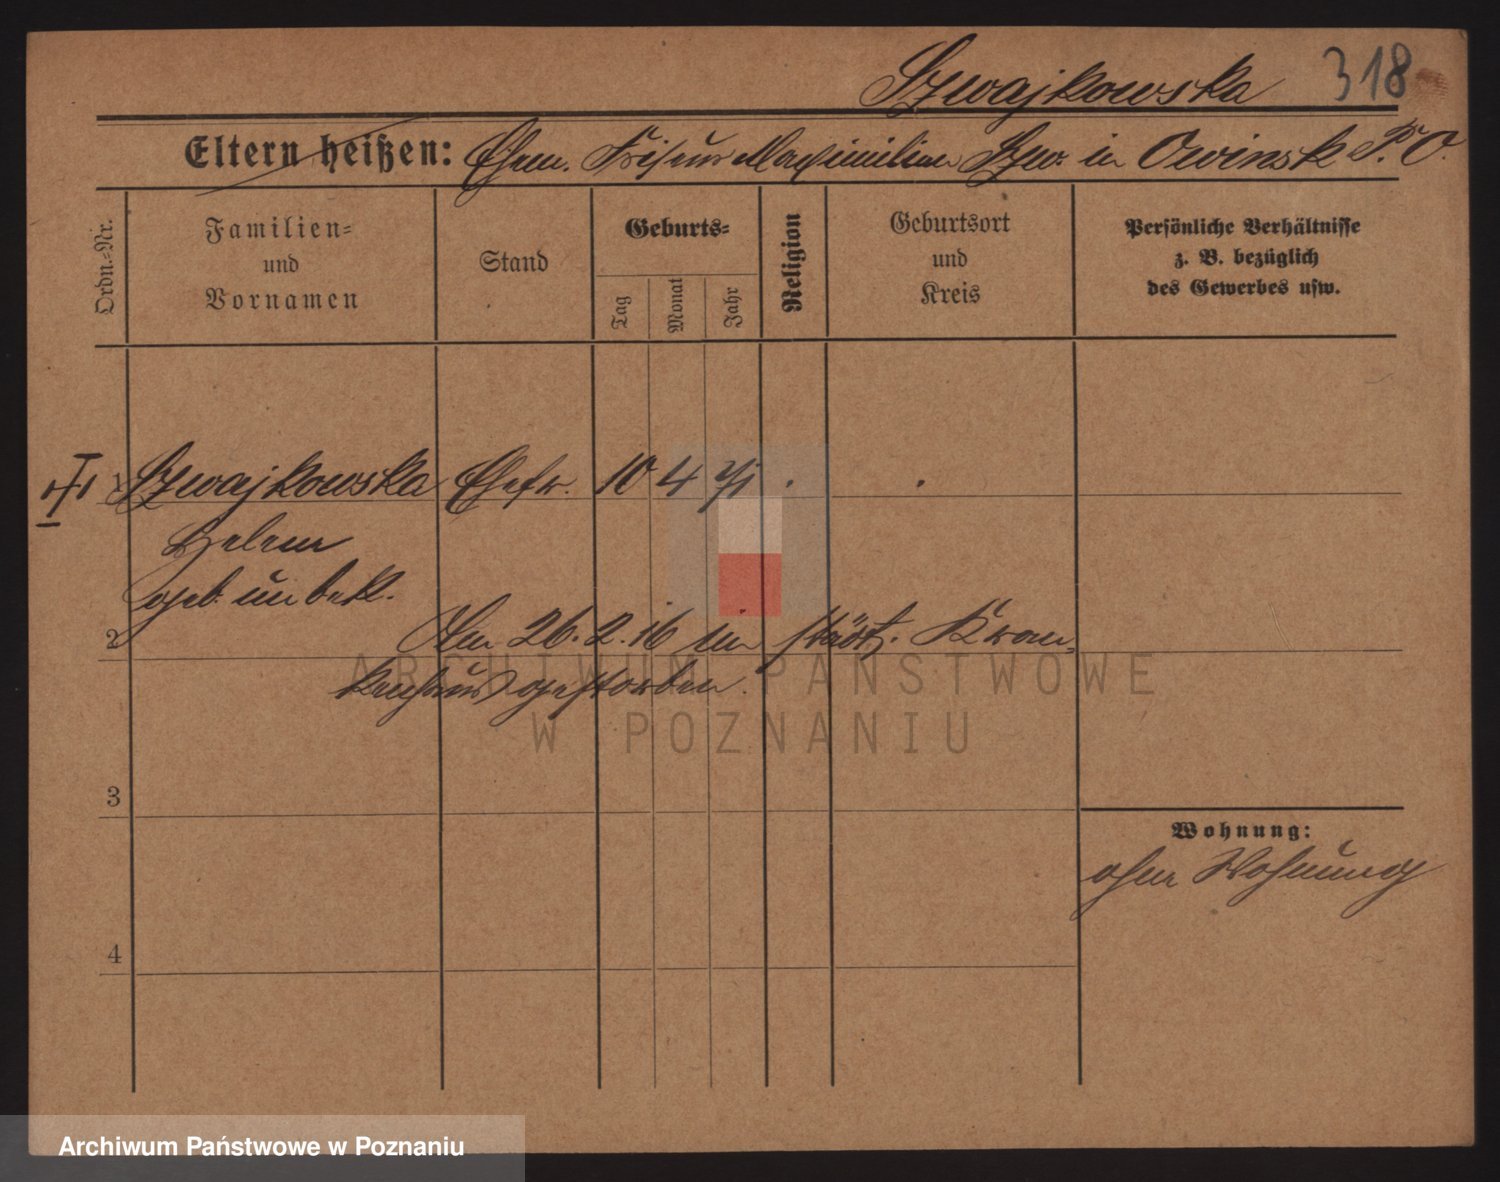 Szwajkowska 318
Eltern heißen: Ehem. Friseur Maximilian Szw. in Owinsk P. O.
Ordn.=Nr.
Familien=
und
Vornamen
Stand
Geburts=
Tag
Monat
Jahr
Religion
Geburtsort
und
Kreis
Persönliche Verhältnisse
z. B. bezüglich
des Gewerbes usw.
1 Szwajkowska Ehefr. 10 4 71 . .
Helene
geb. unbek.
2 Am 26.2.16 im städt. Kran=
kenhaus gestorben.
3
4
Wohnung:
ohne Wohnung
ARCHIWUM PAŃSTWOWE
W POZNANIU
Archiwum Państwowe w Poznaniu